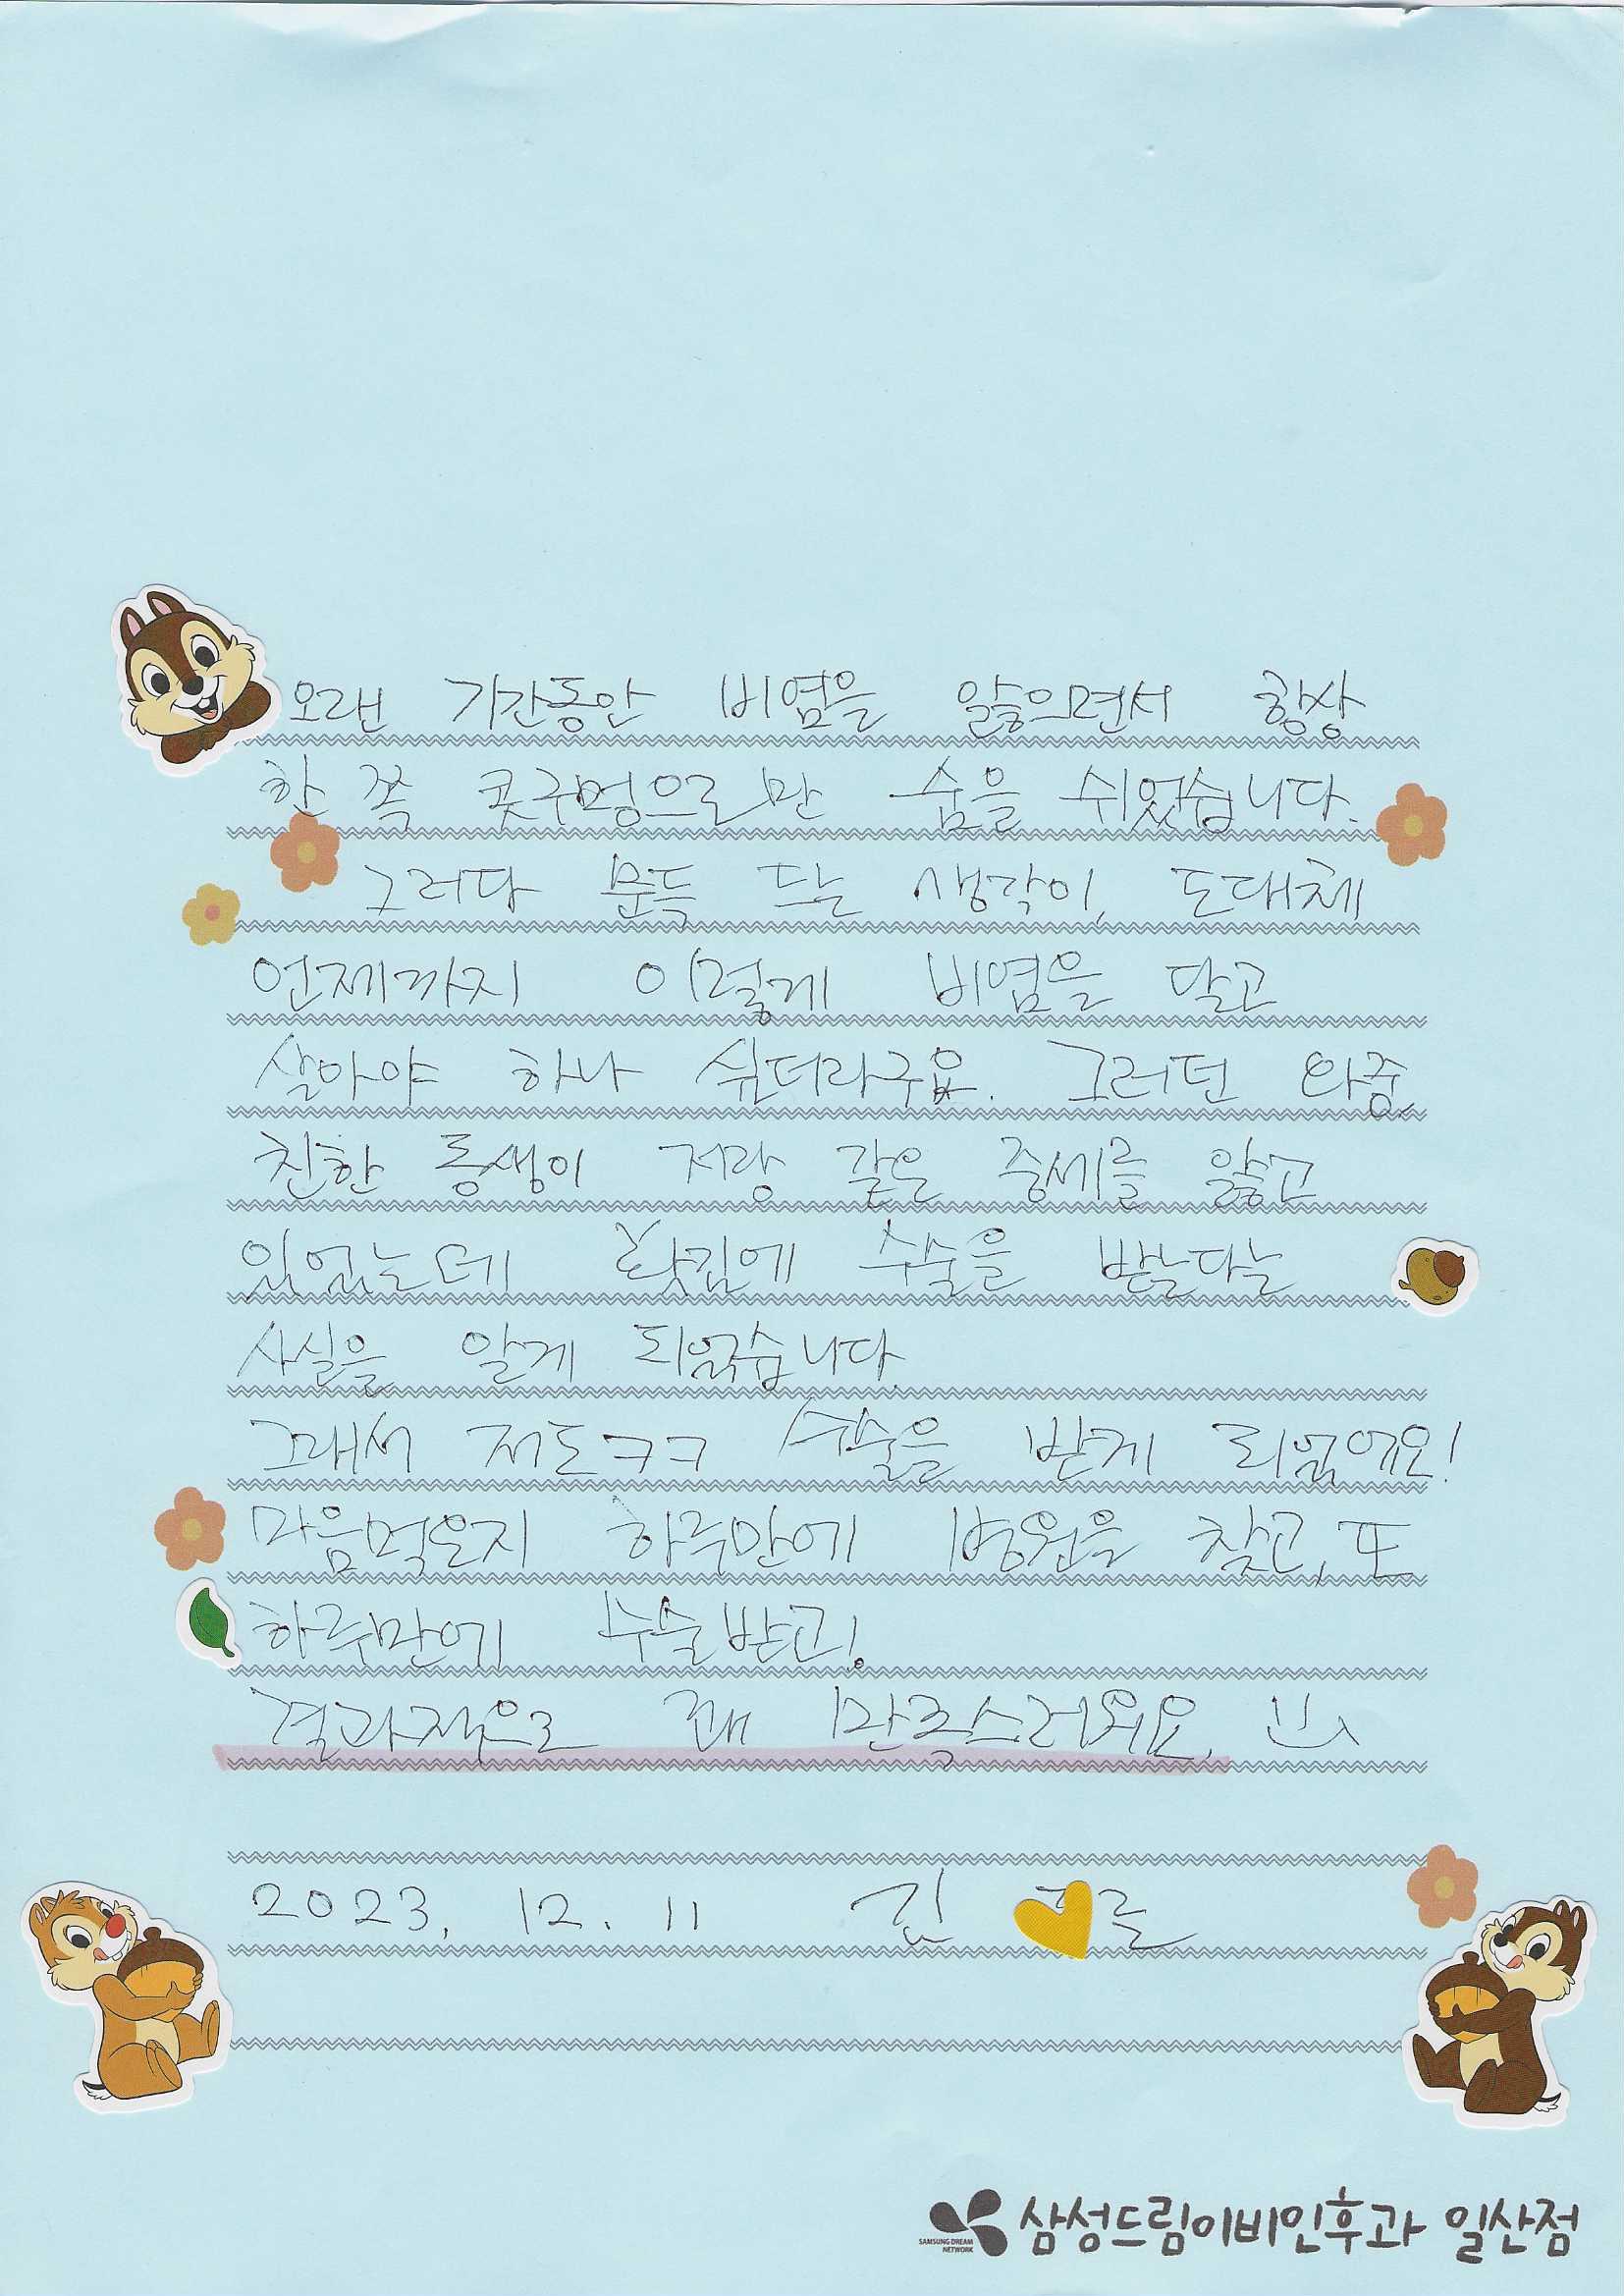 오랜 기간동안 비염을 앓으면서 항상
한 쪽 콧구멍으로만 숨을 쉬었습니다.
그러다 문득 드는 생각이, 도대체
언제까지 이렇게 비염을 달고
살아야 하나 싶더라구요. 그러던 와중,
친한 동생이 저랑 같은 증세를 앓고
있었는데 홧김에 수술을 받는다는
사실을 알게 되었습니다.
그래서 저도ㅋㅋ 수술을 받게 되었어요!
마음먹은지 하루만에 병원을 찾고, 또
하루만에 수술받고!
결과적으로 꽤 만족스러워요.
2023. 12. 11 김
SAMSUNG DREAM
NETWORK
삼성드림이비인후과 일산점